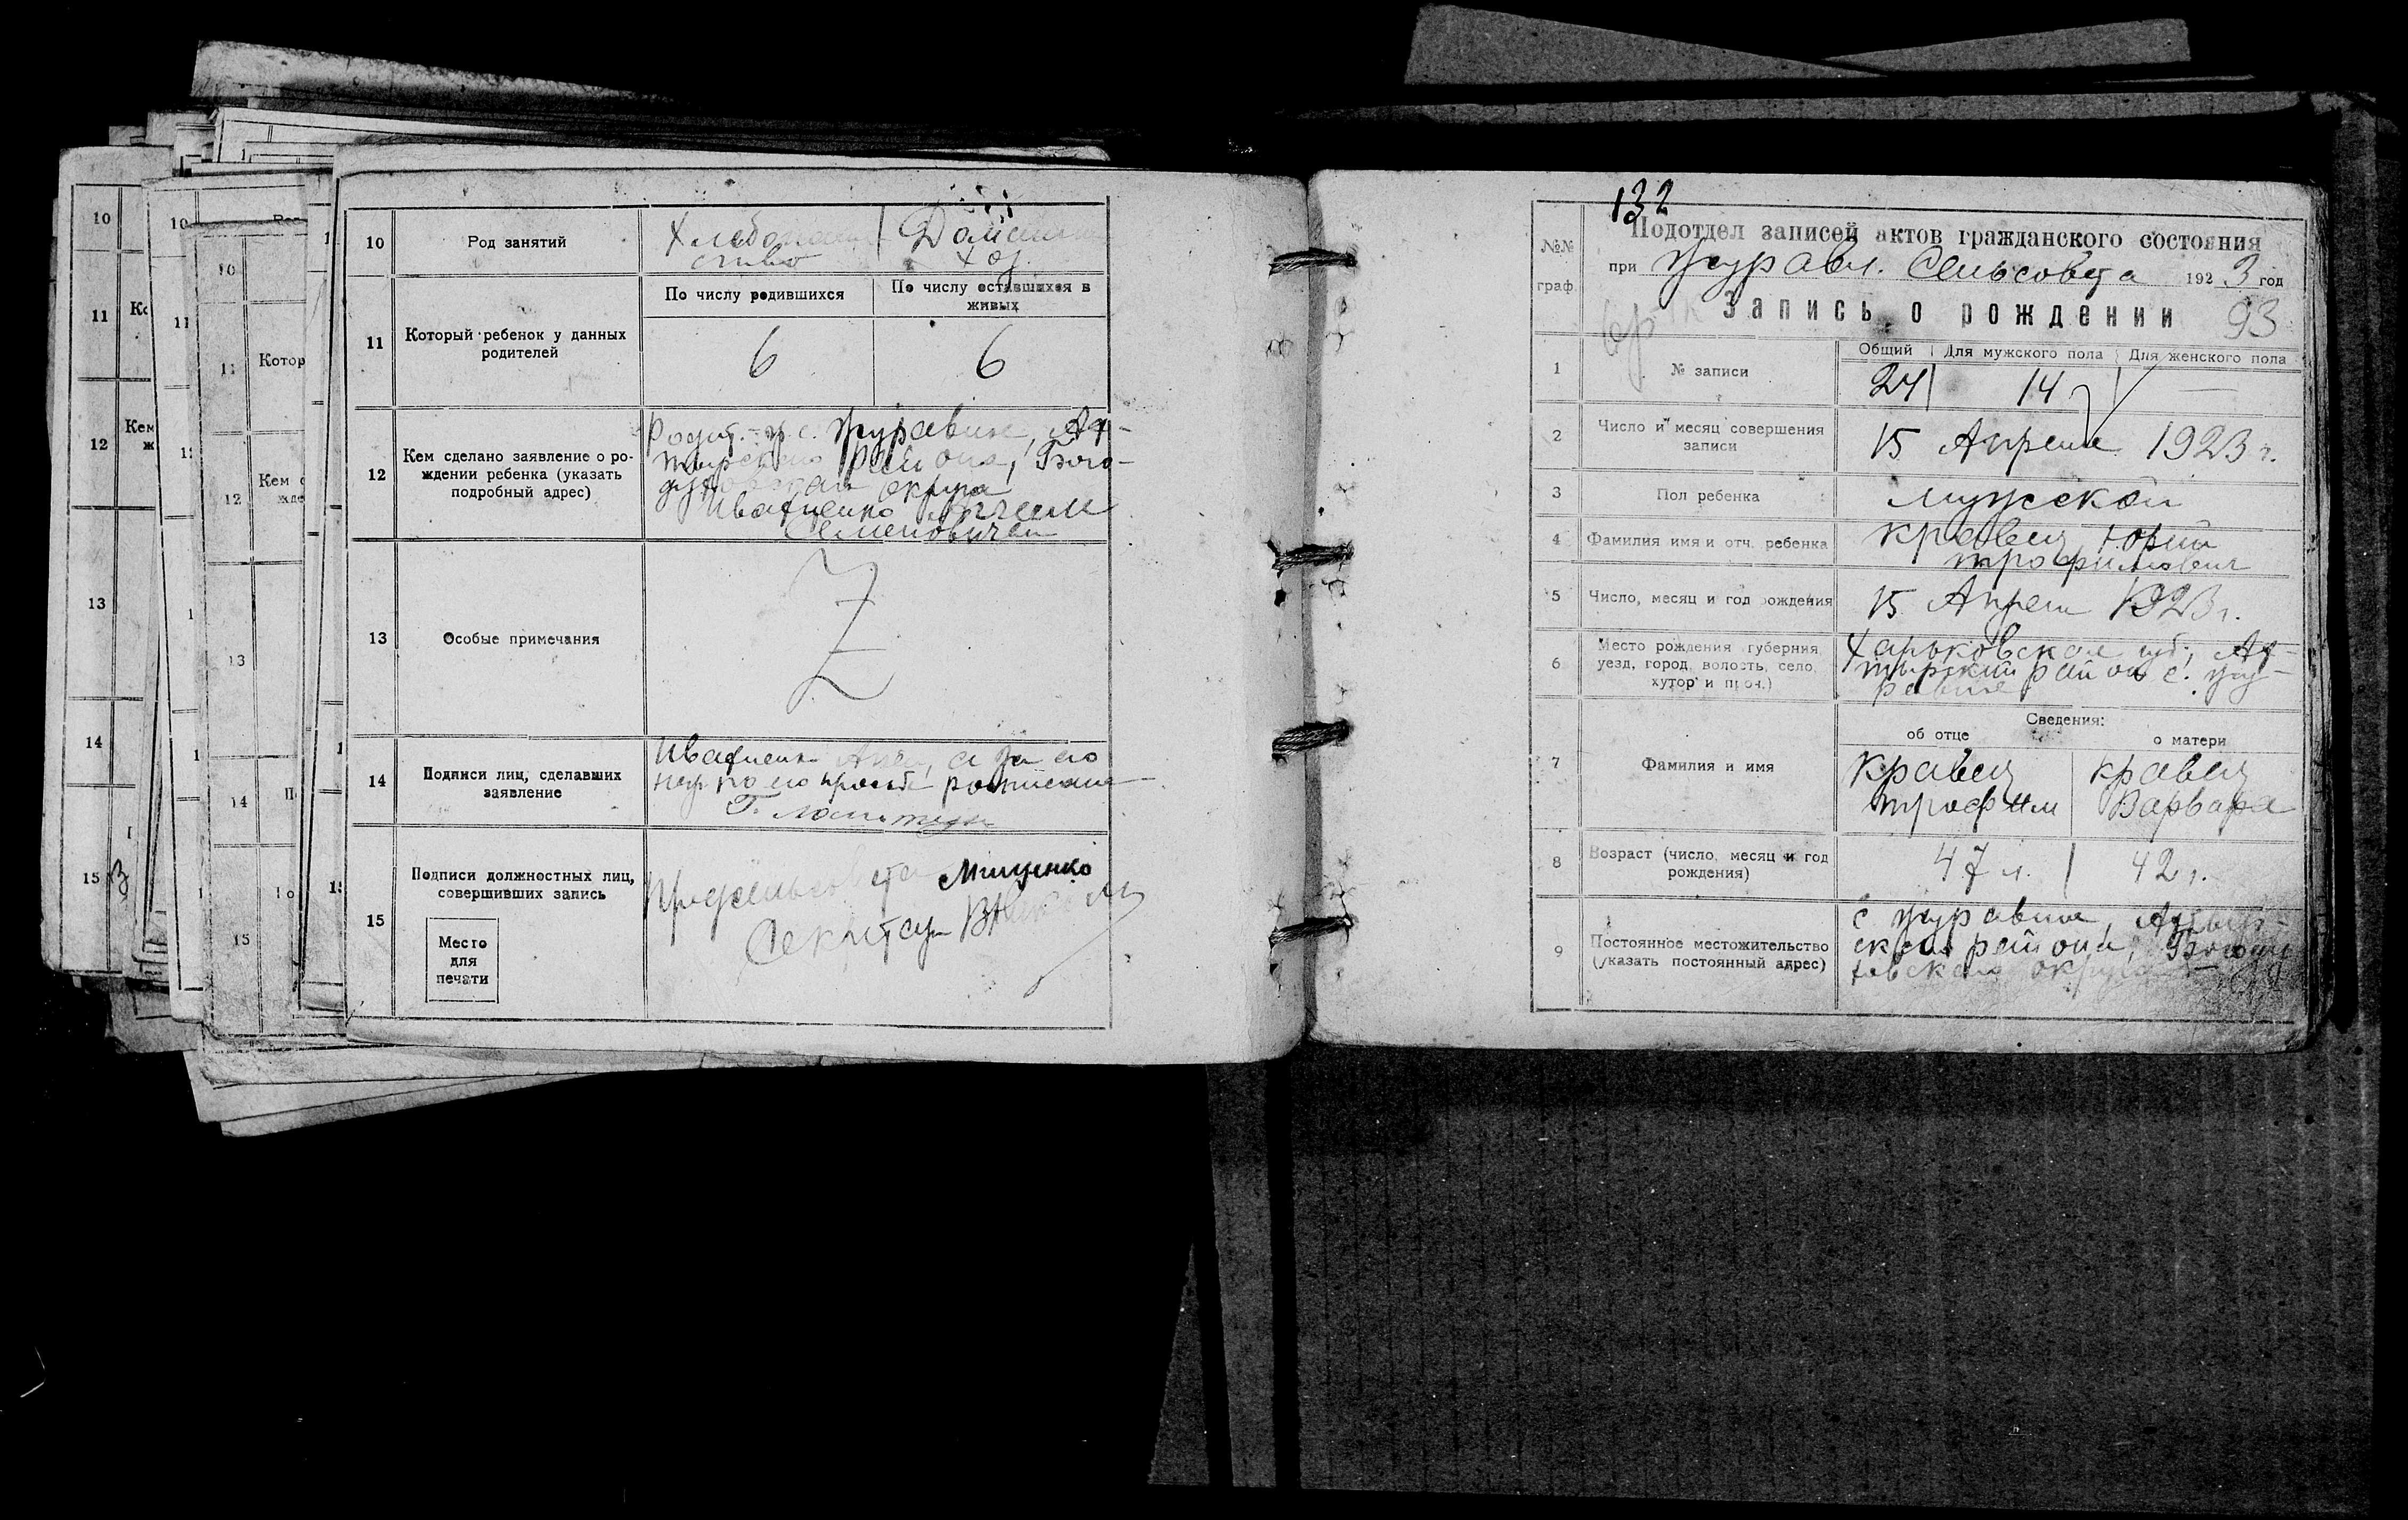 10
Род занятий
Хлебопаше
ство
Домашн
хоз.
11
Который ребенок у данных
родителей
По числу родившихся
По числу оставшихся в
живых
6
6
12
Кем сделано заявление о ро-
ждении ребенка (указать
подробный адрес)
Родит. с. Журавне, Ах-
тырского района, Бого-
духовского округа
Семеновичем
13
Особые примечания
Z
14
Подписи лиц, сделавших
заявление
а за его
негр по его просьбе
15
Подписи должностных лиц,
совершивших запись
Место
для
печати
Предсельсовета Мищенко
Секретарь
132
№№
граф.
Подотдел записей актов гражданского состояния
при Журавл. Сельсовета 1923 год
Запись о рождении
93
1
№ записи
Общий
Для мужского пола
Для женского пола
24
14
—
2
Число и месяц совершения
записи
15 Апреля 1923 г.
3
Пол ребенка
мужской
4
Фамилия имя и отч. ребенка
Кравец Юрий
Трофимович
5
Число, месяц и год рождения
15 Апреля 1923 г.
6
Место рождения (губерния,
уезд, город, волость, село,
хутор и проч.)
Харьковская губ., Ах-
тырский район с. Жу-
равне
7
Фамилия и имя
Сведения:
об отце
о матери
Кравец
Трофим
Кравец
Варвара
8
Возраст (число, месяц и год
рождения)
47 л.
42 г.
9
Постоянное местожительство
(указать постоянный адрес)
с Журавне, Ахтыр-
ского района, Богоду
ховского округа
10
11
12
13
14
15
10
11
Котор
12
13
14
15